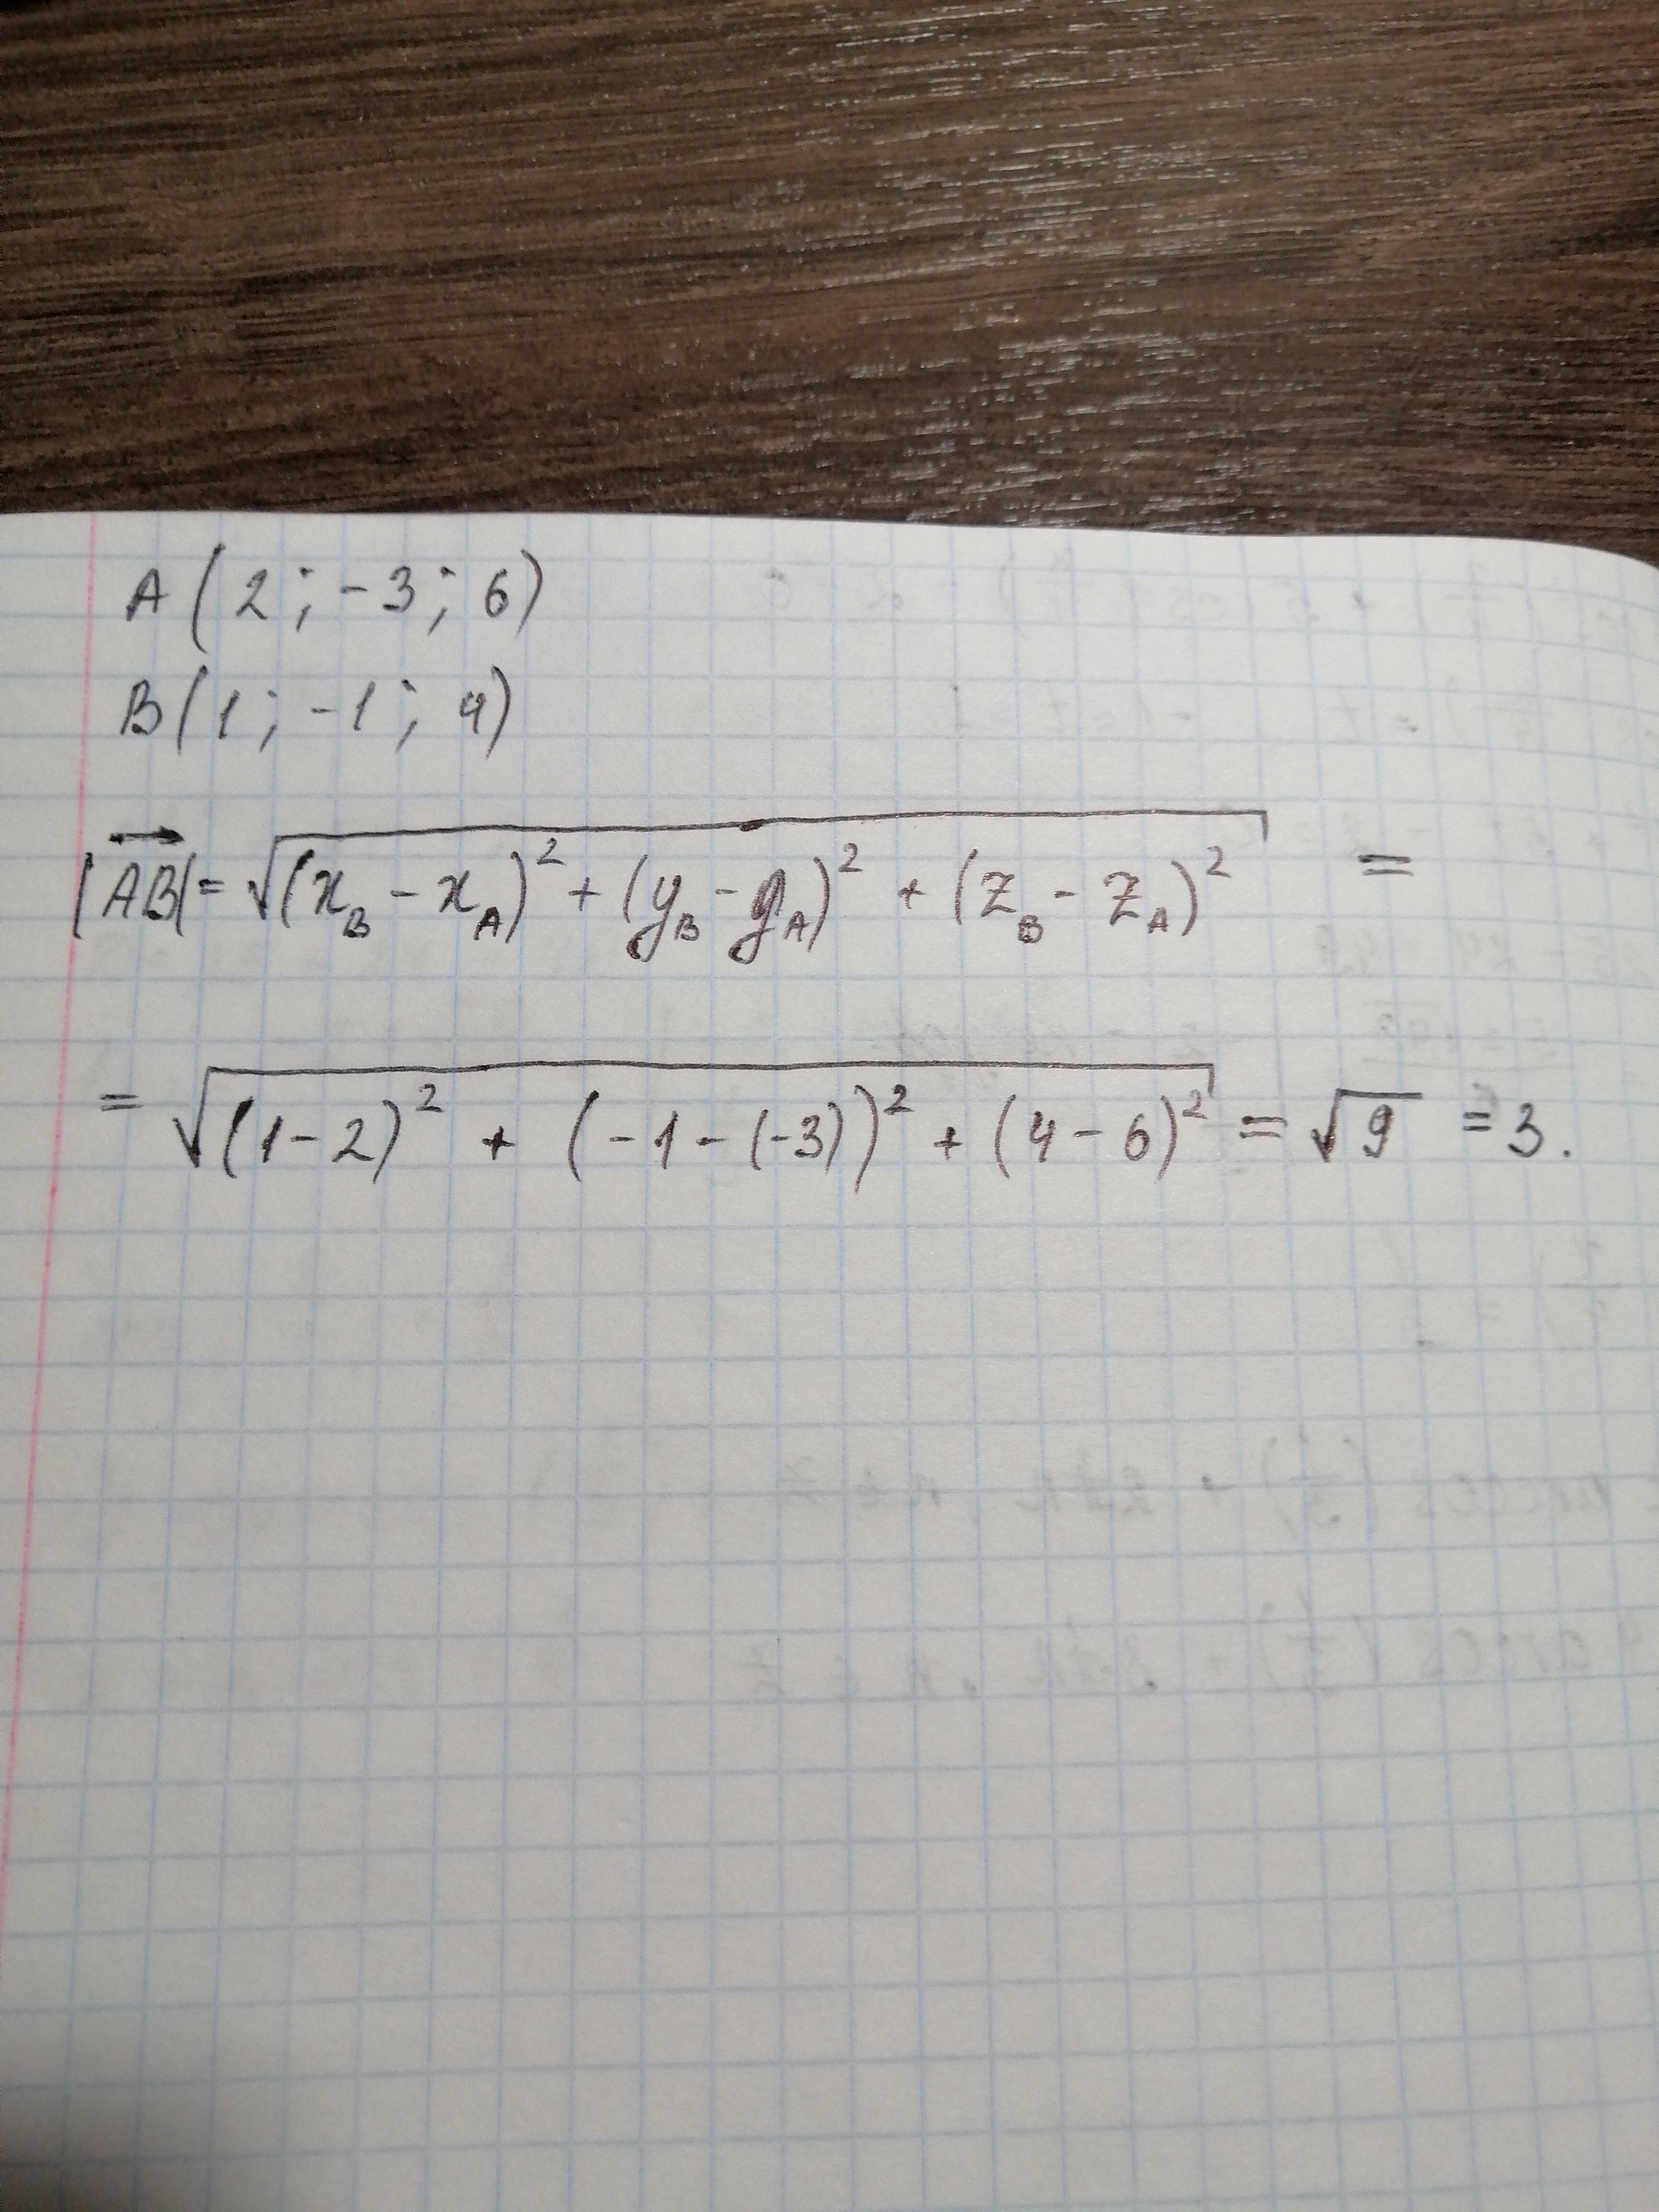 A (2 ; -3 ; 6)
B (1 ; -1 ; 4)
|AB| = √(x_B - x_A)² + (y_B - y_A)² + (z_B - z_A)² =
= √(1-2)² + (-1-(-3))² + (4-6)² = √9 = 3.